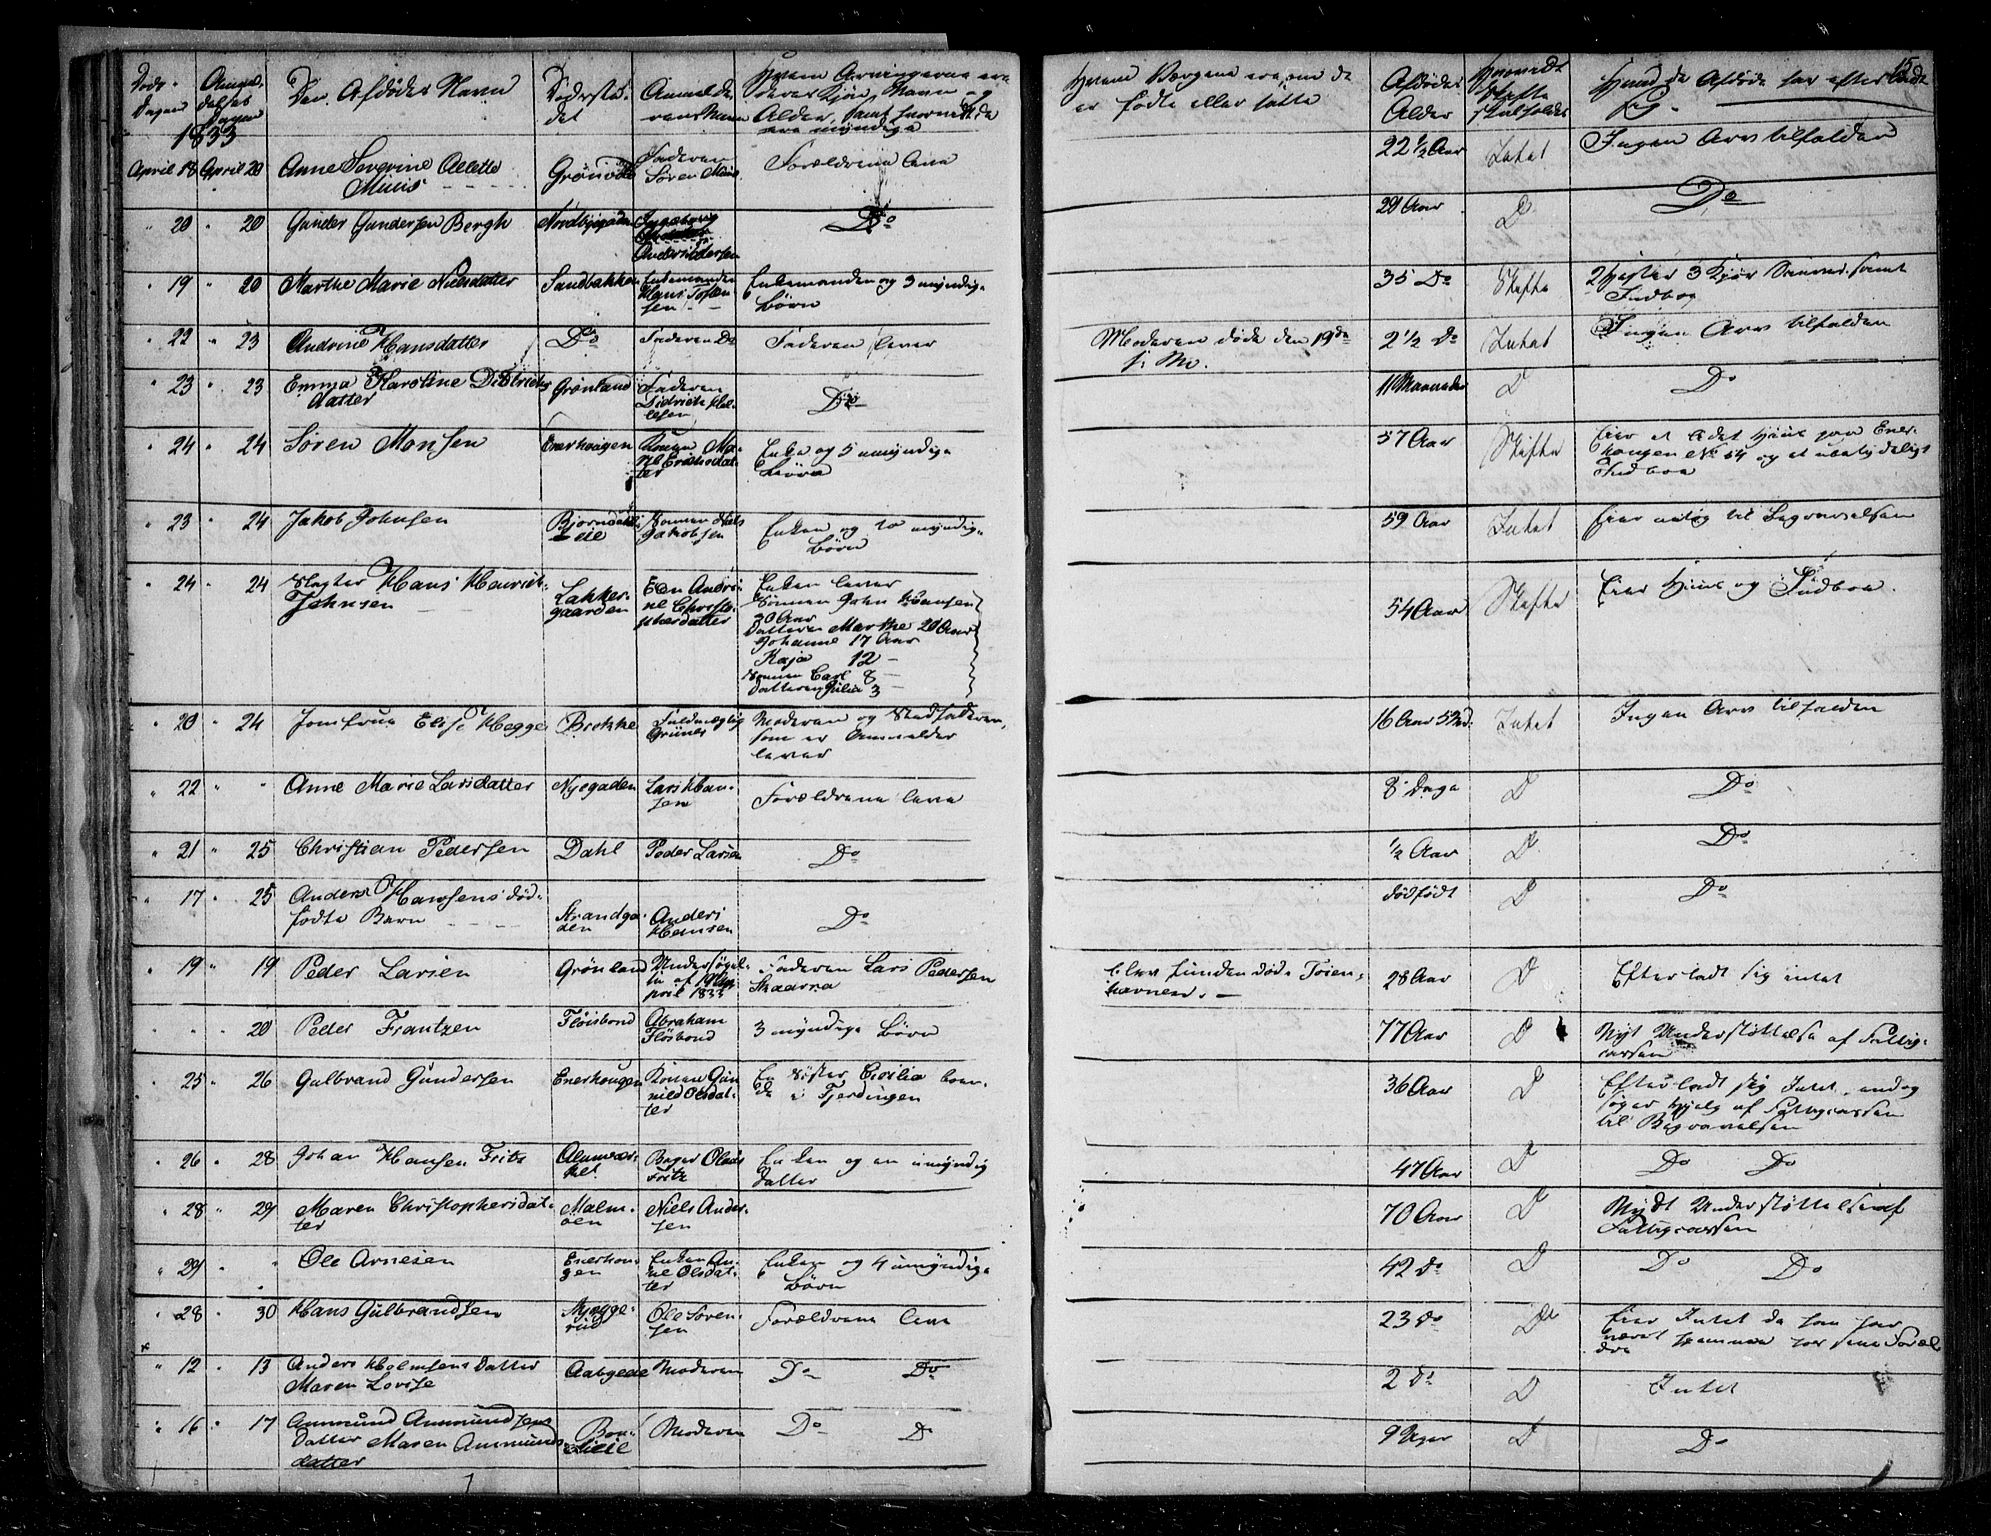 Døds-Dagen | Anmeldelses Dagen | Den Afdødes Navn | Dødsstedet | Anmelderens Navn | Hvem Arvingerne ere deres Kjøn, Navn og Alder, samt hvorvidt de ere myndige | Hvem Børgene ere, om de er fødte eller | Afdødes Alder | Hvorvidt Skifte skal holdes | Hvad de Afdøde har efterladt sig
15
1833
April 18 | April 20 | Anne Severine Aletta Muus | Grønvold | Faderen Søren Muus | Forældrene leve | 22 1/2 Aar | Intet | Ingen Arv tilfalden
" 20 | " 20 | Gunder Gundersen Bergh | Nordbygaden | Ingeborg Andersdatter | Do | 29 Aar | D | Do
" 19 | " 20 | Marthe Marie Nielsdatter | Sandbakken | Enkemanden Hans Tostensen | Enkemanden og 3 myndige Børn | 35 Do | Skifte | 2 Hester 3 Kjør samt Indboe
" 22 | " 23 | Andrine Hansdatter | Do | Faderen Do | Faderen lever | Moderen døde den 19de | 2 1/2 Do | Intet | Ingen Arv tilfalden
" 23 | " 23 | Emma Karoline Didrichsdatter | Grønland | Faderen Didrich | Do | 11 Maaneder | D | Do
" 24 | " 24 | Søren Monsen | Enerhougen | Konen Erichsdatter | Enke og 5 umyndige Børn | 57 Aar | Skifte | Eier et Huus paa Enerhougen No 54 og et ubetydeligt Indboe
" 23 | " 24 | Jakob Johnsen | Bjørndals eie | Sønnen Niels Jakobsen | Enken og to myndige Børn | 59 Aar | Intet | Eier til Begravelsen
" 24 | " 24 | Slagter Hans Henrich Johnsen | Lakkegaarden | Elen Andrine Christophersdatter | Enken lever Sønnen John Hansen 30 Aar Datteren Marthe 20 Aar Johanne 17 Aar Kaja 12 – Sønnen Carl 8 – Datteren Julia 3 – | 54 Aar | Skifte | Eier Huus og Indboe.
" 20 | " 24 | Jomfrue Elise Hegge | Brekke | Fuldmægtig Grüner | Moderen og Stedfaderen, som er Anmelder lever | 16 Aar 5 Md. | Intet | Ingen Arv tilfalden
" 22 | " " | Anne Marie Larsdatter | Nyegaden | Lars Hansen | Forældrene leve | 8 Dage | D | Do
" 21 | " 25 | Christian Pedersen | Dahl | Peder Larsen | Do | 1/2 Aar | D | Do
" 17 | " 25 | Anders Hansens dødfødte Barn | Strandgaden | Anders Hansen | Do | dødfødt | D | Do
" 19 | " 19 | Peder Larsen | Grønland | Undersøgelse af 19 April 1833 | Faderen Lars Pedersen Skaarra | Blev funden død i Toienhavnen. – | 28 Aar | D | Efterladt sig intet
" " | " 20 | Peder Frantzen | Fløisbond | Abraham Fløisbond | 3 myndige Børn | 77 Aar | D | Nydt Understøttelse af Fattigcassen
" 25 | " 26 | Gulbrand Gundersen | Enerhougen | Konen Gunnild Olsdatter | En Søster Cicilia boende i Fjerdingen | 36 Aar | D | Efterladt sig Intet, endog søger Hjelp af Fattigcassen til Begravelsen
" 26 | " 28 | Johan Hansen Fritz | Alunværket | Fritz | Enken og en umyndig Datter | 47 Aar | D | Do Do
" 28 | " 29 | Maren Christophersdatter | Malmøen | Niels Andersen | 70 Aar | D | Nydt Understøttelse af Fattigcassen
" 29 | " " | Ole Arnesen | Enerhougen | Enken Anne Olsdatter | Enken og 4 umyndige Børn | 42 Do | D | Do Do
" 28 | " 30 | Hans Gulbrandsen | Myggerud | Ole Sørensen | Forældrene leve | 23 Do | Do | Eier Intet da han har været hjemme hos sine Forældre
" 12 | " 13 | Anders Holmsens Datter Maren Lovise | Aabygede | Moderen | Do Do | 2 Do | D | Intet
" 16 | " 17 | Ammund Ammundsens Datter Maren Ammundsdatter | Moderen | Do D | 9 Uger | D | Do